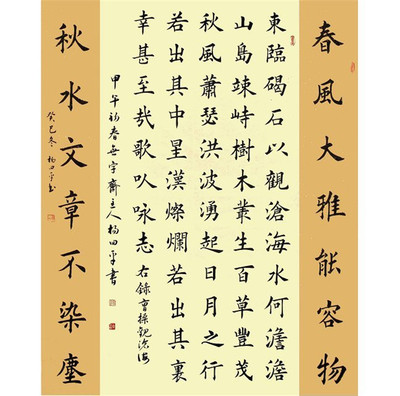 春風大雅能容物
東臨碣石以觀滄海水何澹澹
山島竦峙樹木叢生百草豐茂
秋風蕭瑟洪波湧起日月之行
若出其中星漢燦爛若出其裏
幸甚至哉歌以咏志 右錄曹操觀滄海
甲午初春字齋主人楊田平書
秋水文章不染塵
癸巳冬楊田平書